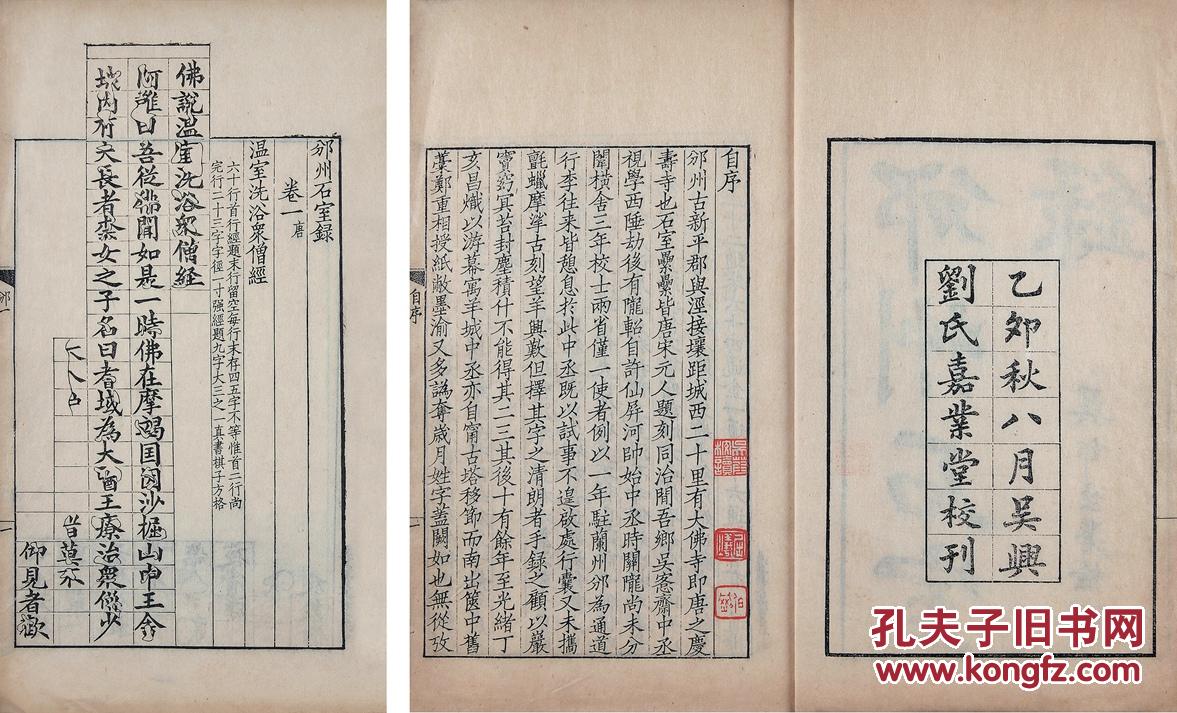 乙卯秋八月吳興
劉氏嘉業堂校刊
自序
邠州古新平郡與涇接壤距城西二十里有大佛寺即唐之慶
壽寺也石室纍纍皆唐宋元人題刻同治閒吾鄉吳愙齋中丞
視學西陲劫後有隴軺自許仙屏河帥始中丞時關隴尚未分
闈橫舍三年校士兩省僅一使者例以一年駐蘭州邠為通道
行李往來皆憩息於此中丞既以試事不遑啟處行囊又未攜
氈蠟摩挲古刻望羊興歎但擇其字之清朗者手錄之顧以巖
竇窈冥苔封塵積什不能得其二三其後十有餘年至光緒丁
亥昌熾以游幕寓羊城中丞亦自甯古塔移節而南出篋中舊
藁鄭重相授紙敝墨渝又多譌奪歲月姓字蓋闕如也無從攷
自序
邠州石室録
卷一 唐
温室洗浴衆僧經
六十行首行經題末行留空每行末存四五字不等惟首二行尚
完行二十三字字徑一寸强經題九字大三之一真書棋子方格
佛說温室洗浴衆僧経
阿難曰吾從佛聞如是一時佛在摩竭国因沙掘山中王舍
城内有大長者柰女之子名曰耆域為大醫王療治衆僧少
大人
仰見者歡
孔夫子旧书网
www.kongfz.com